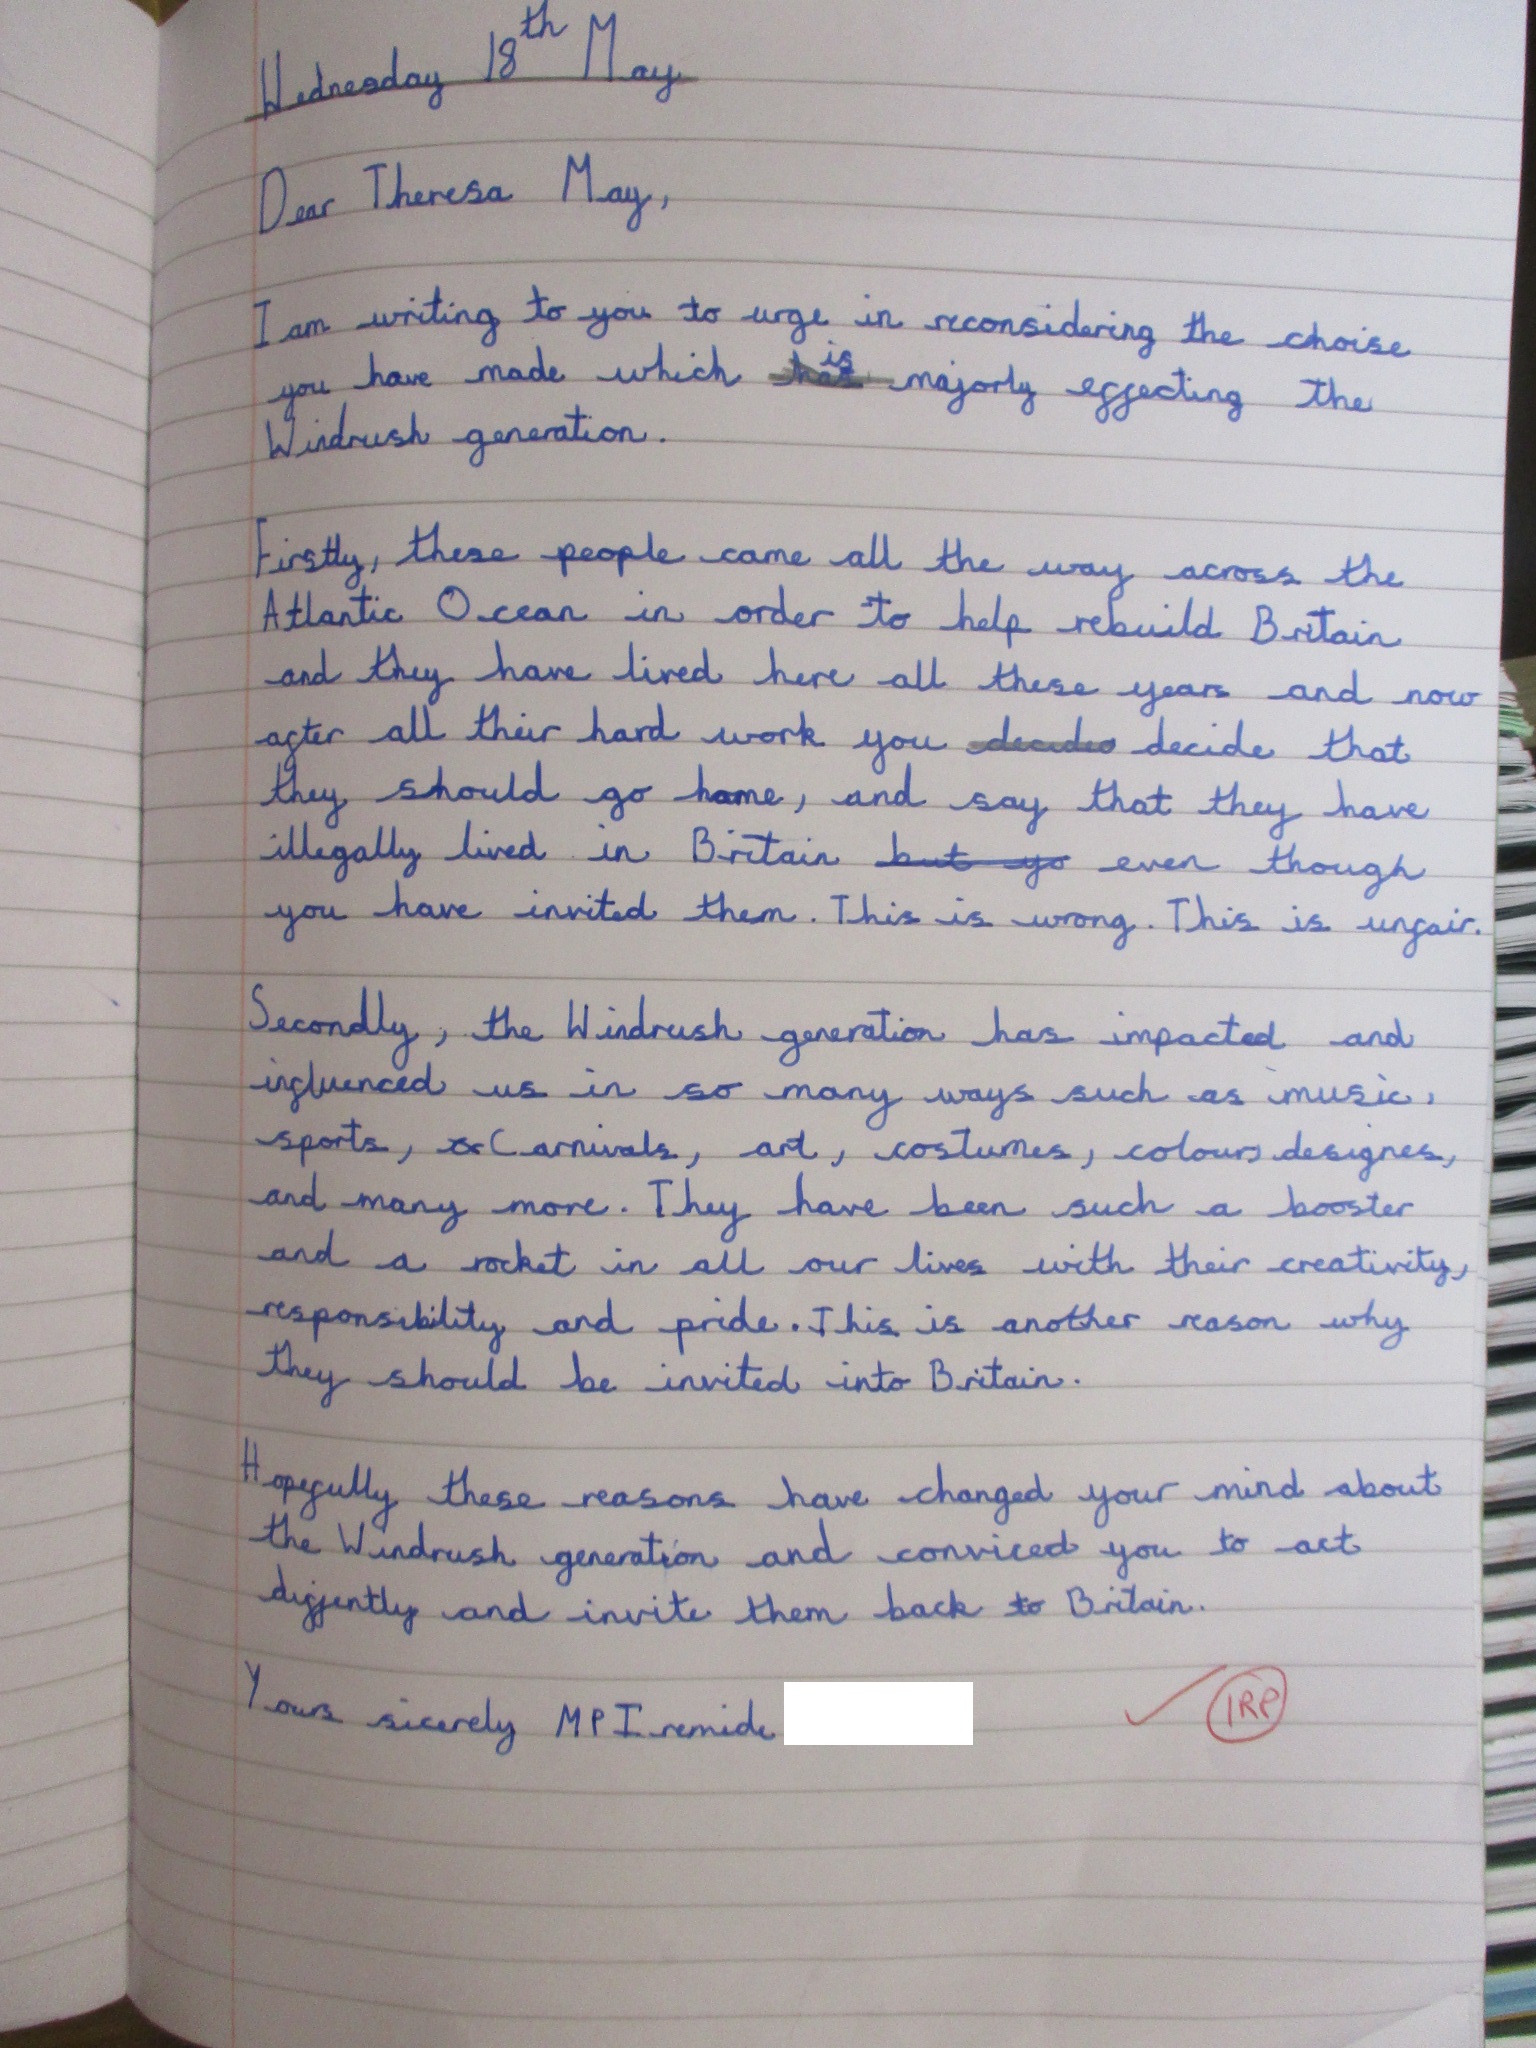 Wednesday 18th May
Dear Theresa May,
I am writing to you to urge in reconsidering the choise
you have made which is majorly effecting the
Windrush generation.
Firstly, these people came all the way across the
Atlantic Ocean in order to help rebuild Britain
and they have lived here all these years and now
after all their hard work you decide that
they should go home, and say that they have
illegally lived in Britain but yo even though
you have invited them. This is wrong. This is unfair.
Secondly, the Windrush generation has impacted and
influenced us in so many ways such as music,
sports, Carnivals, art, costumes, colours designes,
and many more. They have been such a booster
and a rocket in all our lives with their creativity,
responsibility and pride. This is another reason why
they should be invited into Britain.
Hopefully these reasons have changed your mind about
the Windrush generation and conviced you to act
diffently and invite them back to Britain.
Yours sicerely MP Iremide
IRP